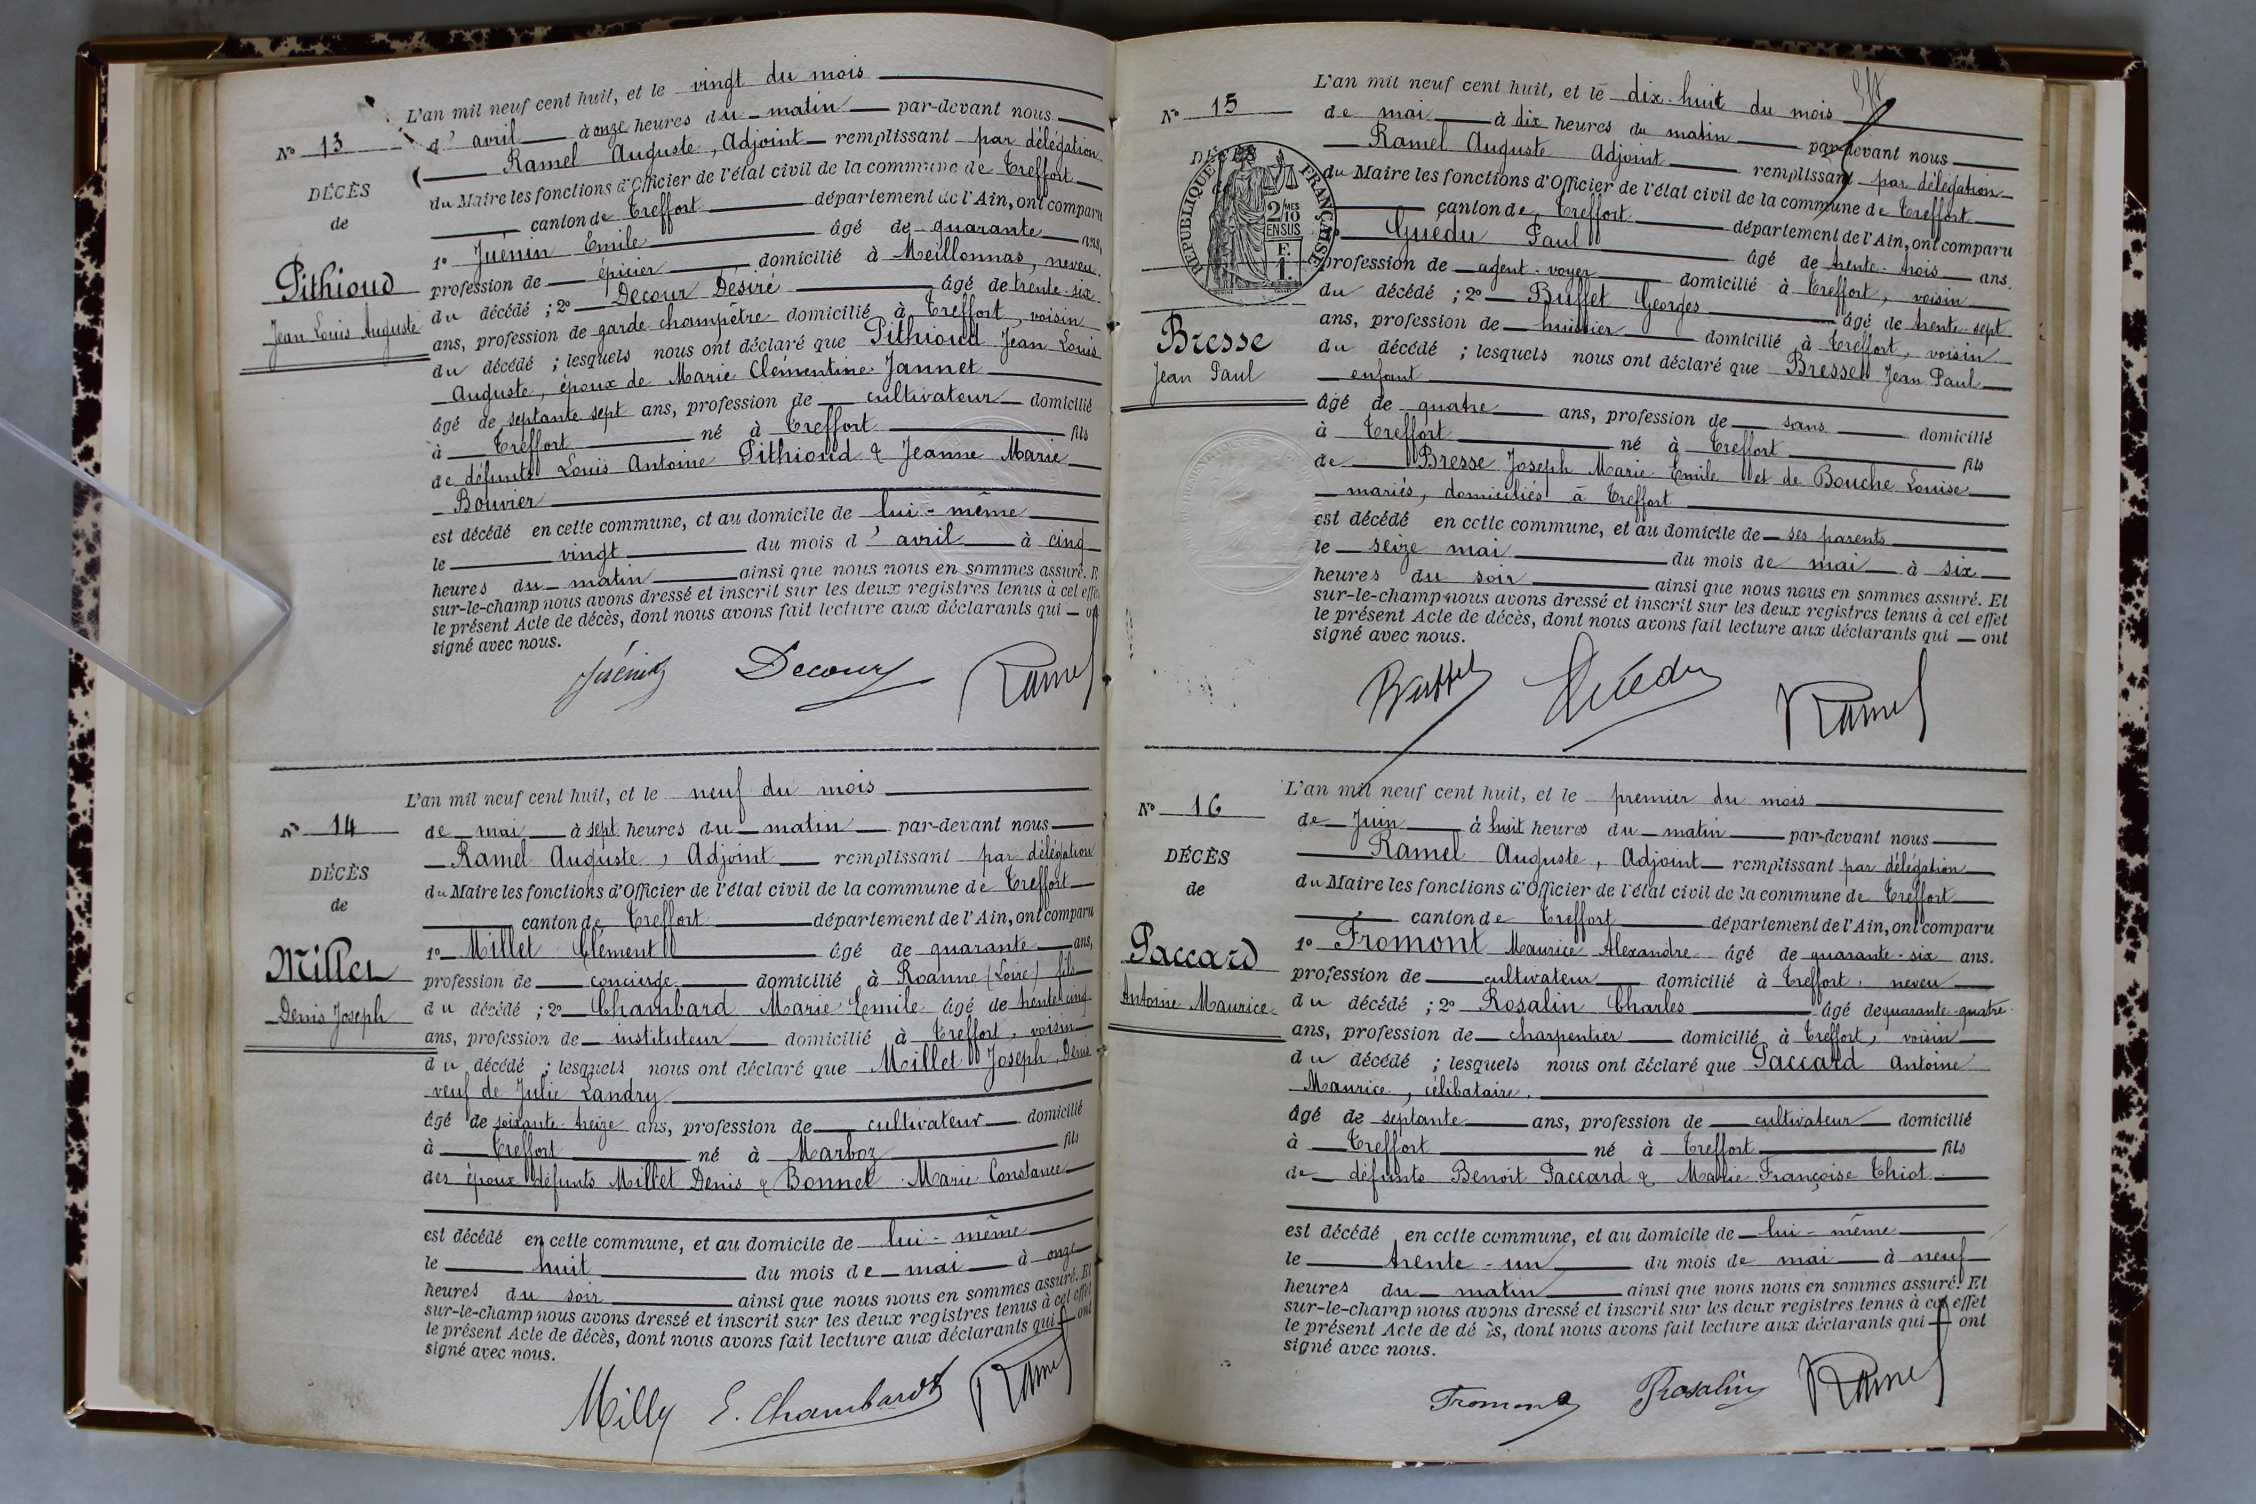 L'an mil neuf cent huit, et le vingt du mois
N° 13
d' avril à onze heures du matin par-devant nous
Ramel Auguste, Adjoint remplissant par délégation
DÉCÈS
du Maire les fonctions d'Officier de l'état civil de la commune de Treffort
de
canton de Treffort département de l'Ain, ont comparu
1° Juénin Emile âgé de quarante ans,
Pithioud
profession de épicier domicilié à Meillonnas, neveu
Jean Louis Auguste
du décédé ; 2° Decour Désiré âgé de trente-six
ans, profession de garde-champêtre domicilié à Treffort, voisin
du décédé ; lesquels nous ont déclaré que Pithioud Jean Louis
Auguste, époux de Marie Clémentine Jannet
âgé de septante sept ans, profession de cultivateur domicilié
à Treffort né à Treffort fils
de défunts Louis Antoine Pithioud & Jeanne Marie
Bouvier
est décédé en cette commune, et au domicile de lui-même
le vingt du mois d' avril à cinq
heures du matin ainsi que nous nous en sommes assuré. E
sur-le-champ nous avons dressé et inscrit sur les deux registres tenus à cet effe
le présent Acte de décès, dont nous avons fait lecture aux déclarants qui on
signé avec nous.
Juénin Decour Ramel
L'an mil neuf cent huit, et le neuf du mois
N° 14
de mai à sept heures du matin par-devant nous
Ramel Auguste, Adjoint remplissant par délégation
DÉCÈS
du Maire les fonctions d'Officier de l'état civil de la commune de Treffort
de
canton de Treffort département de l'Ain, ont comparu
1° Millet Clément âgé de quarante ans,
Millet
profession de concierge domicilié à Roanne (Loire) fils
Denis Joseph
du décédé ; 2° Chambard Marie Emile âgé de trente cinq
ans, profession de instituteur domicilié à Treffort, voisin
du décédé ; lesquels nous ont déclaré que Millet Joseph, Denis
veuf de Julie Landry
âgé de soixante-treize ans, profession de cultivateur domicilié
à Treffort né à Marboz fils
des époux défunts Millet Denis & Bonnet Marie Constance
est décédé en cette commune, et au domicile de lui-même
le huit du mois de mai à onze
heures du soir ainsi que nous nous en sommes assuré. Et
sur-le-champ nous avons dressé et inscrit sur les deux registres tenus à cet effet
le présent Acte de décès, dont nous avons fait lecture aux déclarants qui ont
signé avec nous.
E. Chambard Ramel
L'an mil neuf cent huit, et le dix-huit du mois
N° 15
de mai à dix heures du matin par-devant nous
DÉCÈS
Ramel Auguste Adjoint remplissant par délégation
RÉPUBLIQUE FRANÇAISE
2/10 MES EN SUS
F. 1.
du Maire les fonctions d'Officier de l'état civil de la commune de Treffort
canton de Treffort département de l'Ain, ont comparu
Guédu Paul âgé de trente-trois ans.
profession de agent-voyer domicilié à Treffort, voisin
du décédé ; 2° Buffet Georges âgé de trente-sept
Bresse
ans, profession de huissier domicilié à Treffort, voisin
Jean Paul
du décédé ; lesquels nous ont déclaré que Bresse Jean Paul
enfant
âgé de quatre ans, profession de sans domicilié
à Treffort né à Treffort fils
de Bresse Joseph Marie Emile et de Bouche Louise
mariés, domiciliés à Treffort
est décédé en cette commune, et au domicile de ses parents
le seize mai du mois de mai à six
heures du soir ainsi que nous nous en sommes assuré. Et
sur-le-champ nous avons dressé et inscrit sur les deux registres tenus à cet effet
le présent Acte de décès, dont nous avons fait lecture aux déclarants qui ont
signé avec nous.
Buffet Guédu Ramel
L'an mil neuf cent huit, et le premier du mois
N° 16
de Juin à huit heures du matin par-devant nous
Ramel Auguste, Adjoint remplissant par délégation
DÉCÈS
du Maire les fonctions d'Officier de l'état civil de la commune de Treffort
de
canton de Treffort département de l'Ain, ont comparu
1° Fromont Maurice Alexandre âgé de quarante-six ans.
Paccard
profession de cultivateur domicilié à Treffort, neveu
Antoine Maurice
du décédé ; 2° Rosalin Charles âgé de quarante-quatre
ans, profession de charpentier domicilié à Treffort, voisin
du décédé ; lesquels nous ont déclaré que Paccard Antoine
Maurice, célibataire,
âgé de septante ans, profession de cultivateur domicilié
à Treffort né à Treffort fils
de défunts Benoît Paccard & Marie Françoise Thiot
est décédé en cette commune, et au domicile de lui-même
le trente-un du mois de mai à neuf
heures du matin ainsi que nous nous en sommes assuré. Et
sur-le-champ nous avons dressé et inscrit sur les deux registres tenus à cet effet
le présent Acte de dé ès, dont nous avons fait lecture aux déclarants qui ont
signé avec nous.
Fromont Rosalin Ramel